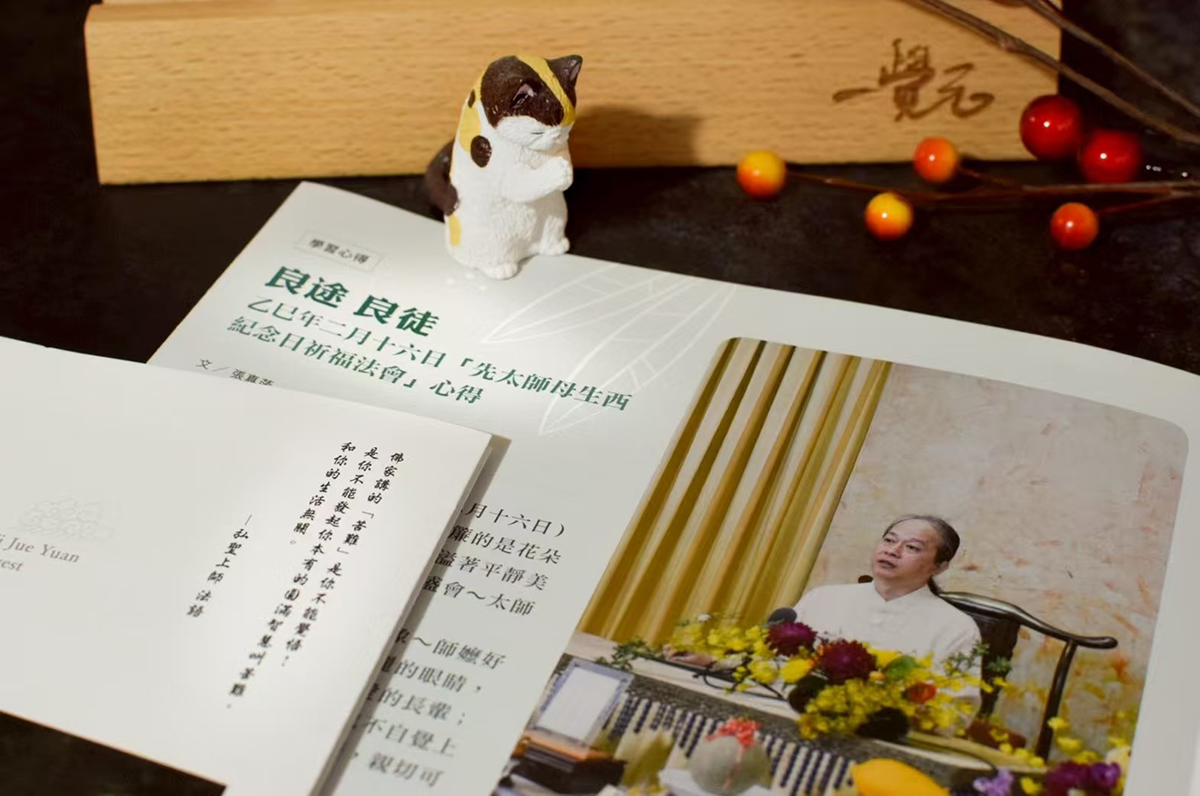 一覺元
學習心得
良途 良徒
乙巳年二月十六日「先太師母生西
紀念日祈福法會」心得
文／張
月十六日）
簾的是花朵
溢著平靜美
盛會～太師
～師嬤好
的眼睛，
的長輩；
不自覺上
，親切可
佛家講的「苦難」是你不能覺悟！
是你不能發起你本有的圓滿智慧叫苦難。
和你的生活無關。
—弘聖上師法語
i Jue Yuan
est